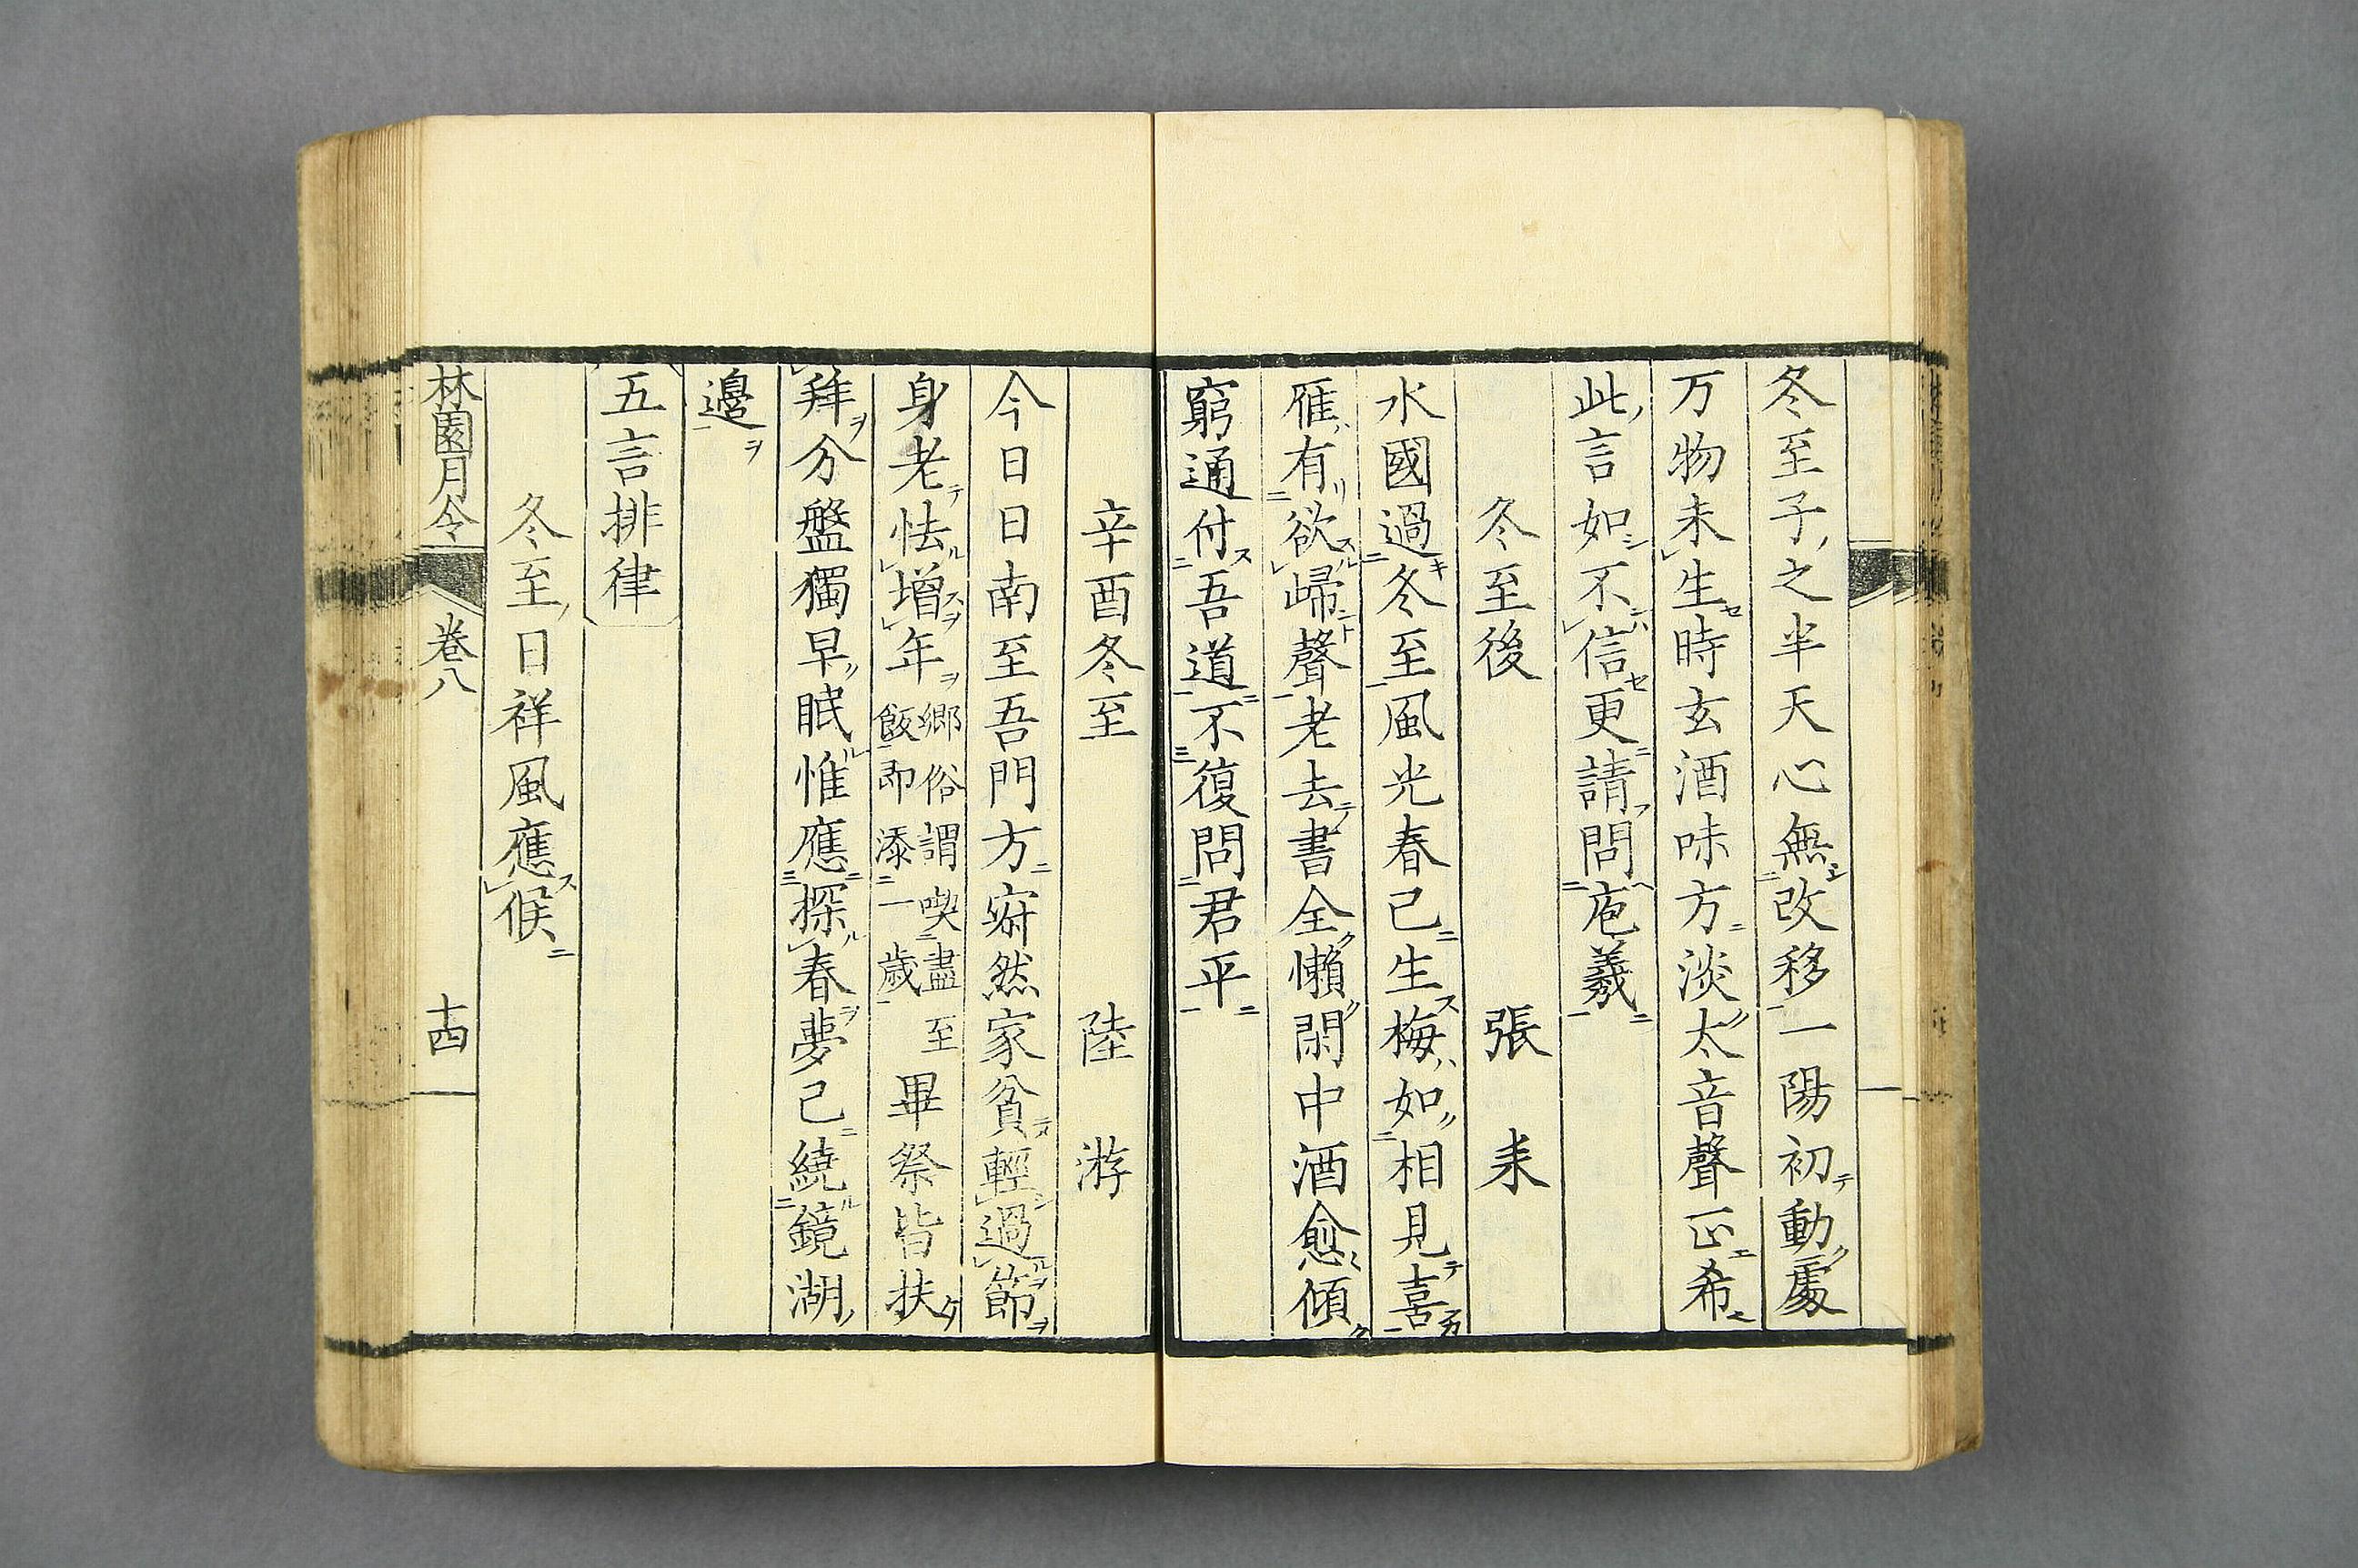 冬至子之半天心無改移一陽初動處
万物未生時玄酒味方淡太音聲正希
此言如不信更請問庖羲
冬至後 張耒
水國過冬至風光春已生梅如相見喜
雁有欲歸聲老去書全懶閑中酒愈傾
窮通付吾道不復問君平
辛酉冬至 陸游
今日日南至吾門方寂然家貧輕過節
身老怯增年鄉俗謂喫盡至飯即添一歲畢祭皆扶
拜分盤獨早眠惟應探春夢已繞鏡湖
邊
五言排律
冬至日祥風應候
林園月令 卷八 十四